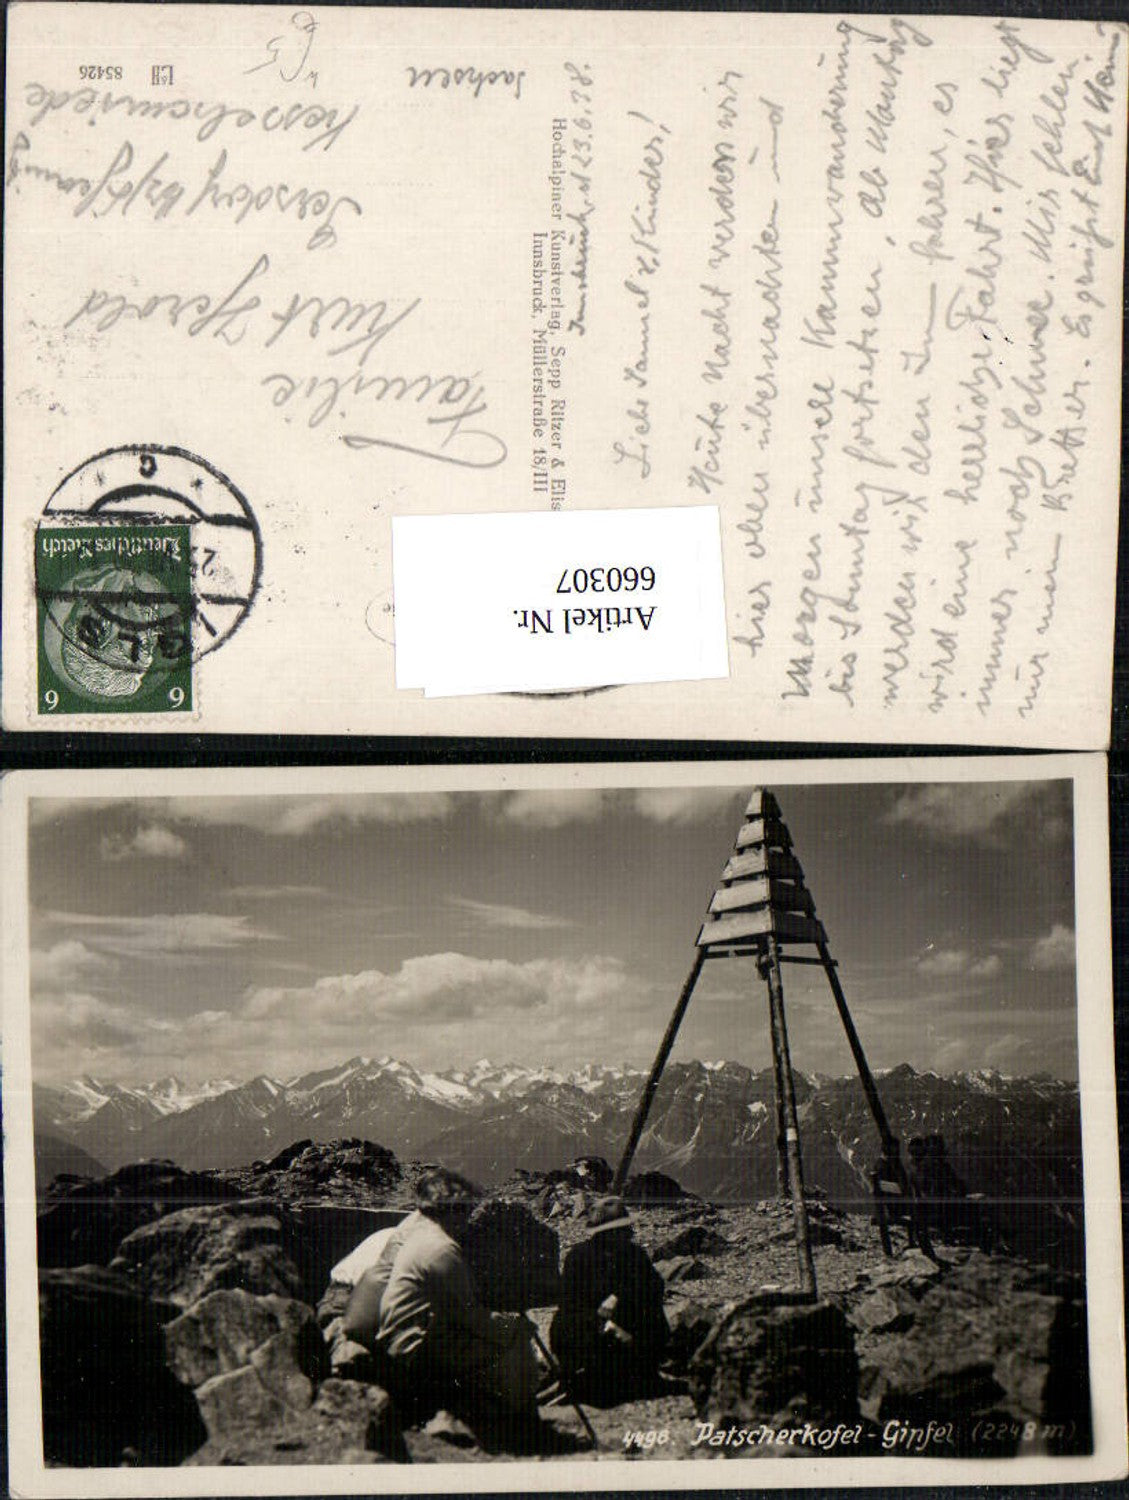 Innsbruck, d 23.6.38.
Liebe Hannel u. Kinder!
Heute Nacht werden wir
hier oben übernachten und
Morgen unsere Kammwanderung
bis Sonntag fortsetzen, ab Montag
werden wir den Inn fahren, es
wird eine herrliche Fahrt. Hier liegt
immer noch Schnee. Mir fehlen
nur mein Bretter. Es grüßt Euch
Hochalpiner Kunstverlag, Sepp Ritzer & Elis
Innsbruck, Müllerstraße 18/III
Familie
Kurt Herold
Kesselschmiede
Sachsen
L&H 85426
Deutsches Reich
6 6
IGLS
23
c
Artikel Nr.
660307
4496. Patscherkofel - Gipfel (2248 m)